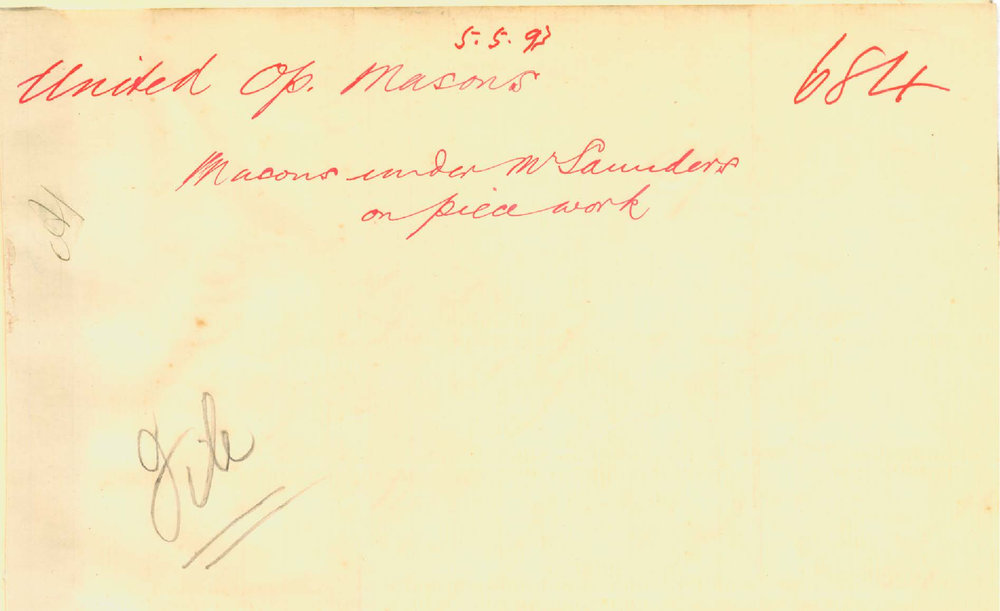 5.5.93
United Op. Masons 684
Macons under Mr Saunders
on piece work
File